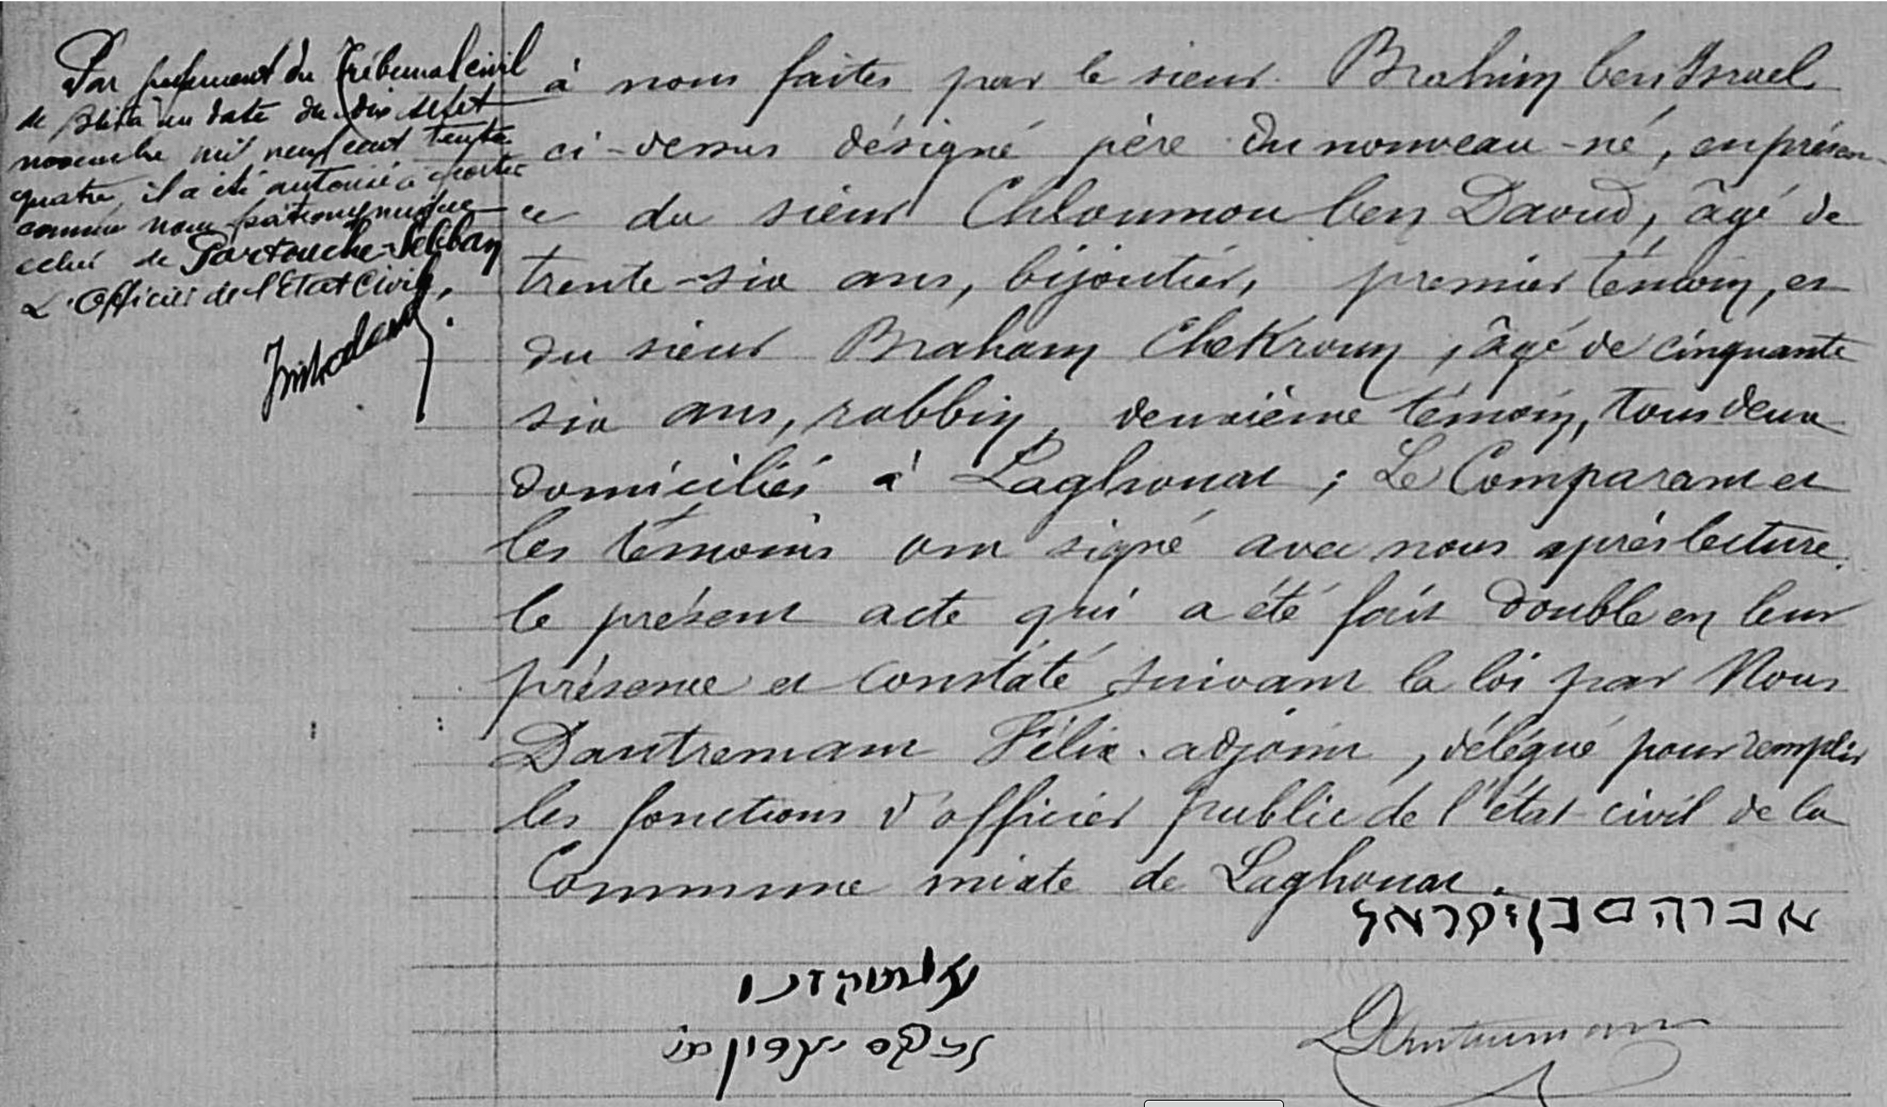 Par jugement du Tribunal civil
de Blida en date du dix sept
novembre mil neuf cent trente
quatre, il a été autorisé à porter
comme nom patronymique
celui de Partouche-Sebban
L'Officier de l'Etat Civil,
à nous faites par le sieur Brahim ben Israel
ci-dessus désigné père du nouveau-né, en présen-
ce du sieur Chloumou ben Daoud, âgé de
trente-six ans, bijoutier, premier témoin, et
du sieur Braham Chekroun, âgé de cinquante
six ans, rabbin, deuxième témoin, tous deux
domiciliés à Laghouat ; Le Comparant et
les témoins ont signé avec nous après lecture
le présent acte qui a été fait double en leur
présence et constaté suivant la loi par Nous
Dautremant Félix adjoint, délégué pour remplir
les fonctions d'officier public de l'état-civil de la
Commune mixte de Laghouat.
אברהם בן ישראל
Dautremant